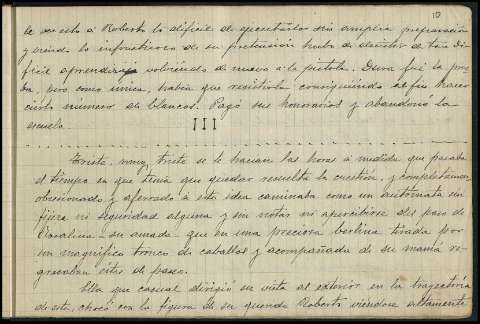 10
de esto á Roberto lo difícil de ejecutarlos sin amplia preparación
y viendo lo infructuoso de su pretensión hubo de desistir de tan di-
fícil aprendizaje volviendo de nuevo á la pistola. Dura fué la prue-
ba, pero como única, había que resistirla consiguiendo al fin hacer
cierto número de blancos. Pagó sus honorarios y abandonó la
escuela.
III
Triste, muy triste se le hacían las horas á medida que pasaba
el tiempo en que tenía que quedar resuelta la cuestión, y completamente
obsesionado y aferrado á esta idea caminaba como un autómata sin
fijeza ni seguridad alguna y sin notar ni apercibirse del paso de
su amada que en una preciosa berlina tirada por
un magnífico tronco de caballos y acompañada de su mamá re-
gresaban éstas de paseo.
Ella que casual dirigió su vista al exterior en la trayectoria
de esta, chocó con la figura de su querido Roberto viéndose